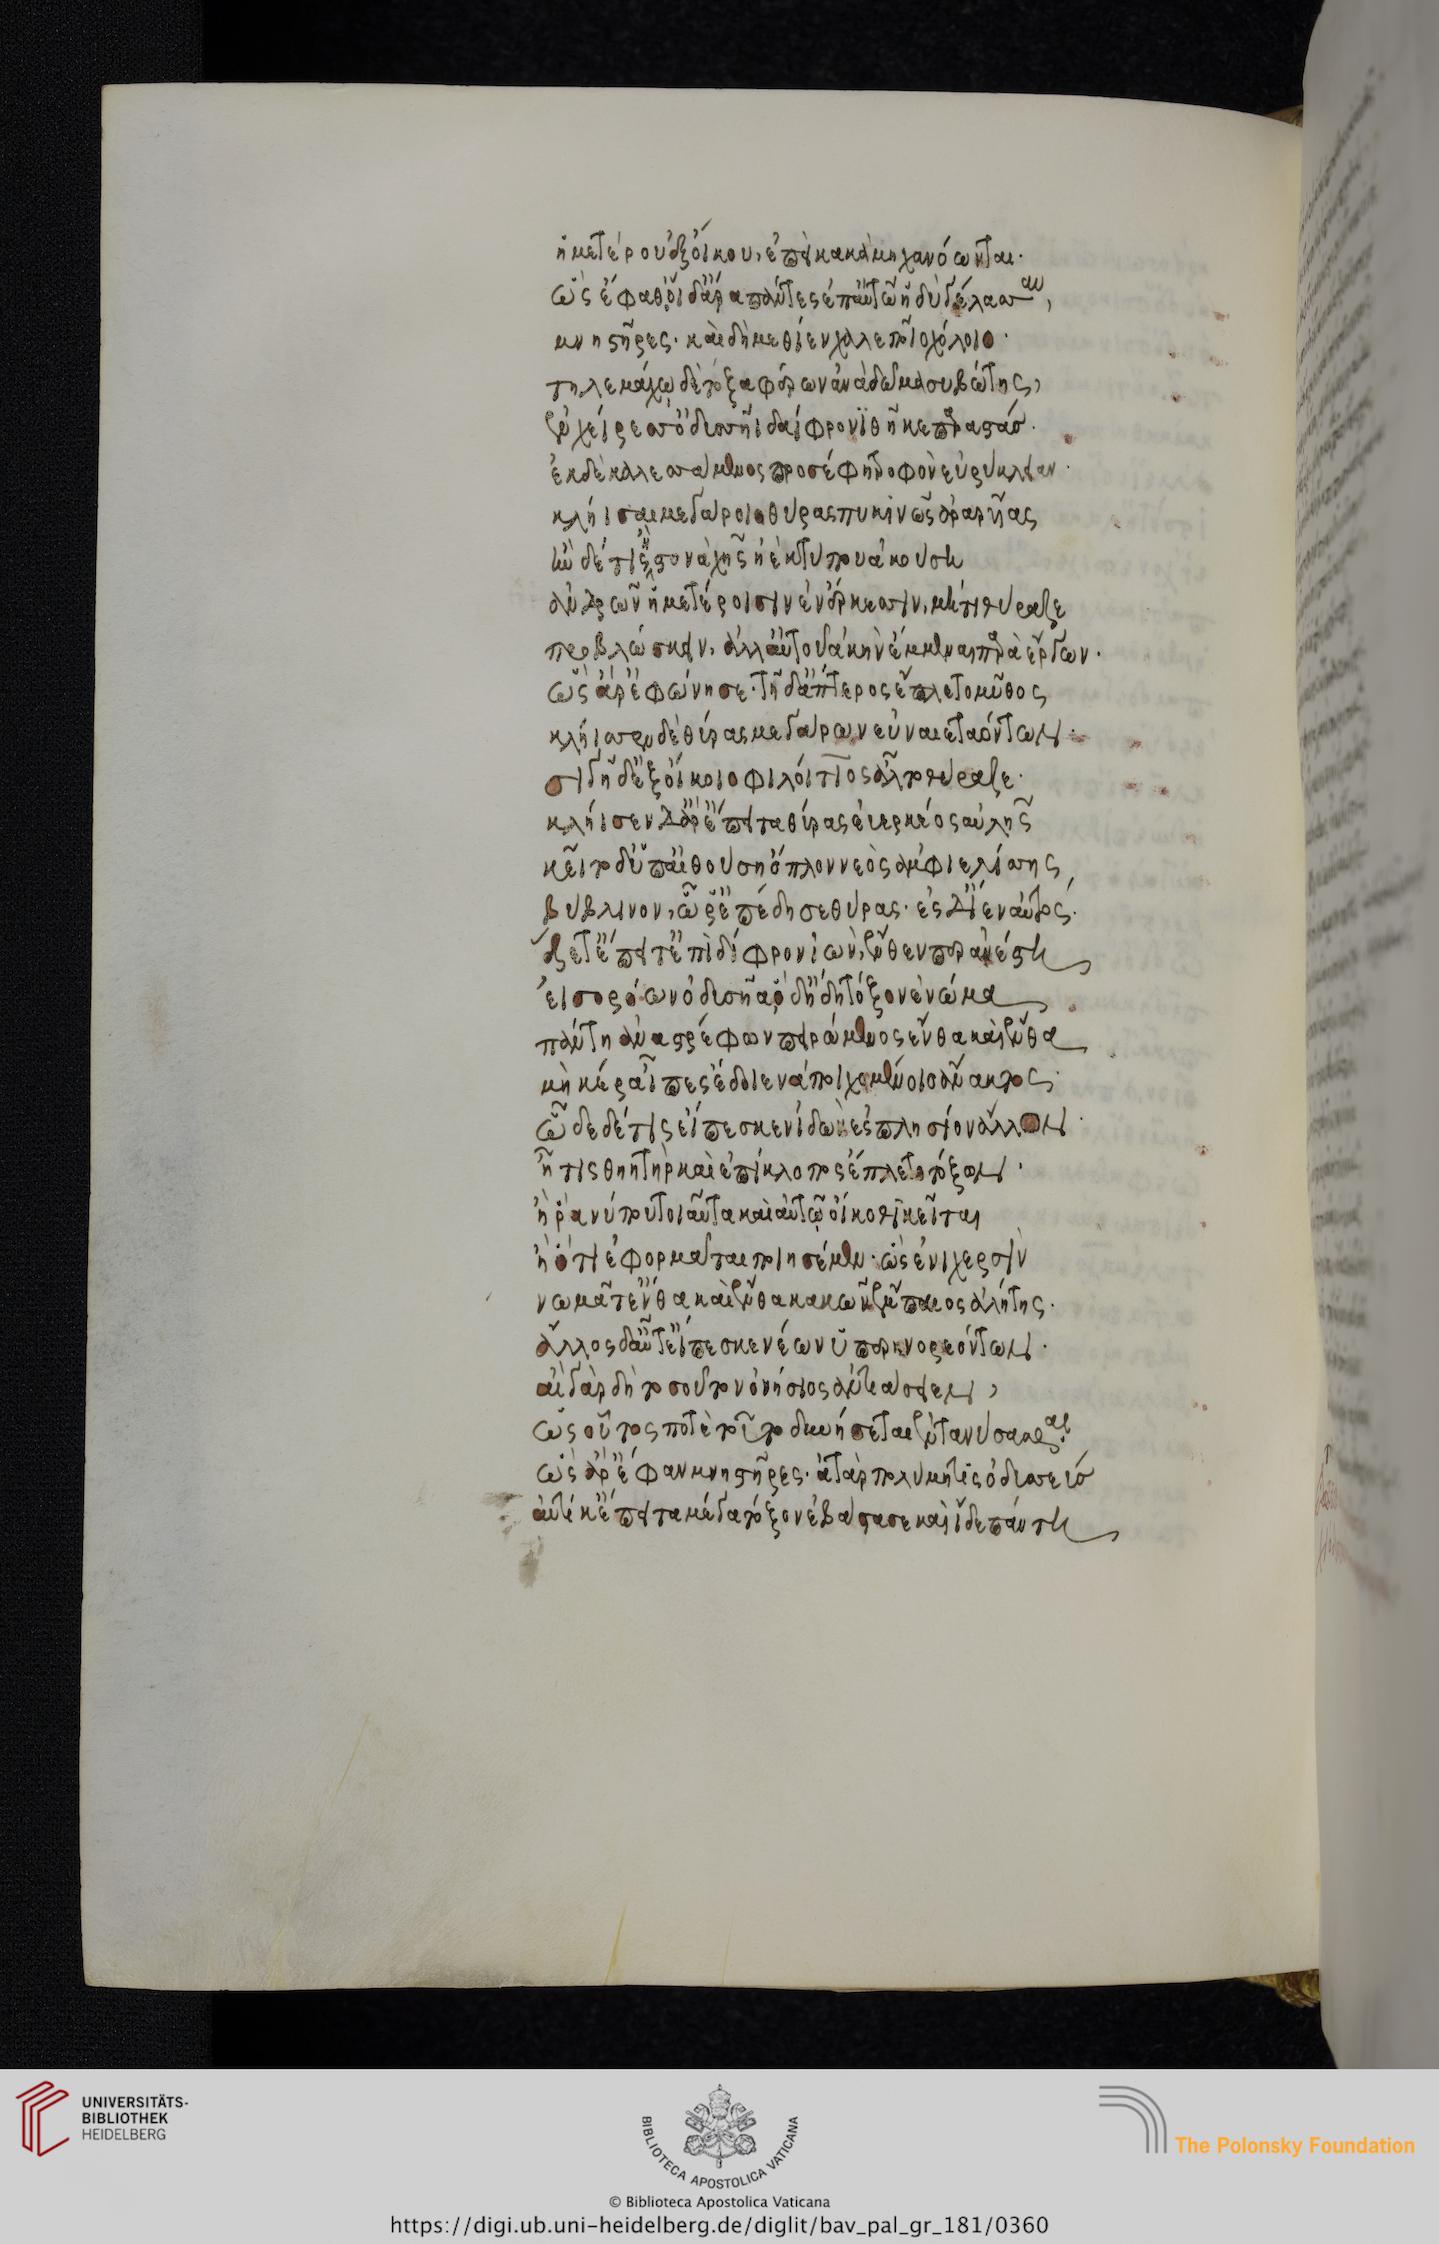 ἡμετέρου ἐξ οἴκου, ἐπεὶ κακὰ μηχανόωνται.
ὣς ἔφαθ' οἱ δ' ἄρα πάντες ἐπ' αὐτῷ ἡδὺ γέλασσαν,
μνηστῆρες. καὶ δὴ μέθιεν χαλεποῖο χόλοιο.
τηλεμάχῳ δὲ τόξα φέρων ἀνὰ δῶμα συβώτης,
ἐν χείρεσσ' ὀδυσῆι δαίφρονι θῆκε παραστάς.
ἐκ δὲ καλεσσάμενος προσέφη τροφὸν εὐρύκλειαν.
κληῖσαι μεγάροιο θύρας πυκινῶς ἀραρυίας
ἢν δέ τις ἢ στοναχῆς ἠὲ κτύπου ἀκούσῃ
ἀνδρῶν ἡμετέροισιν ἐν ἕρκεσσιν, μήτι θύραζε
προβλώσκειν, ἀλλ' αὐτοῦ ἀκὴν ἔμμεναι παρὰ ἔργων.
ὣς ἄρ' ἐφώνησε. τῇ δ' ἄπτερος ἔπλετο μῦθος
κλήισσεν δὲ θύρας μεγάρων εὐναιεταόντων.
σιγῇ δ' ἐξ οἴκοιο φιλοίτιος ἆλτο θύραζε.
κλήισεν δ' ἄρ' ἔπειτα θύρας εὐερκέος αὐλῆς
κεῖτο δ' ὑπ' αἰθούσῃ ὅπλον νεὸς ἀμφιελίσσης
βύβλινον, ᾧ ῥ' ἐπέδησε θύρας. ἐς δ' ἤιεν αὐτός.
ἕζετ' ἔπειτ' ἐπὶ δίφρον ἰὼν, ἔνθεν περ ἀνέστη
εἰσορόων ὀδυσῆα, ὁ δ' ἤδη τόξον ἐνώμα
πάντη ἀναστρέφων πειρώμενος ἔνθα καὶ ἔνθα
μὴ κέρα ἶπες ἔδοιεν ἀποιχομένοιο ἄνακτος.
ὧδε δέ τις εἴπεσκεν ἰδὼν ἐς πλησίον ἄλλον.
ἦ τις θηητὴρ καὶ ἐπίκλοπος ἔπλετο τόξων.
ἤ ῥά νύ που τοιαῦτα καὶ αὐτῷ οἴκοθι κεῖται
ἢ ὅτι ἐφορμᾶται ποιησέμεν. ὡς ἐνὶ χερσὶν
νωμᾷ τ' ἔνθα καὶ ἔνθα κακῶν ἔμπαιος ἀλήτης.
ἄλλος δ' αὖτ' εἴπεσκε νέων ὑπερηνορεόντων.
αἲ γὰρ δὴ τοσοῦτον ὀνήσιος ἀντιάσειεν,
ὡς οὗτός ποτε τοῦτο δυνήσεται ἐντανύσασθαι.
ὣς ἄρ' ἔφαν μνηστῆρες. ἀτὰρ πολύμητις ὀδυσσεύς
αὐτίκ' ἔπειτα μέγα τόξον ἐβάστασε καὶ ἴδε πάντῃ
UNIVERSITÄTS-
BIBLIOTHEK
HEIDELBERG
BIBLIOTECA APOSTOLICA VATICANA
The Polonsky Foundation
© Biblioteca Apostolica Vaticana
https://digi.ub.uni-heidelberg.de/diglit/bav_pal_gr_181/0360